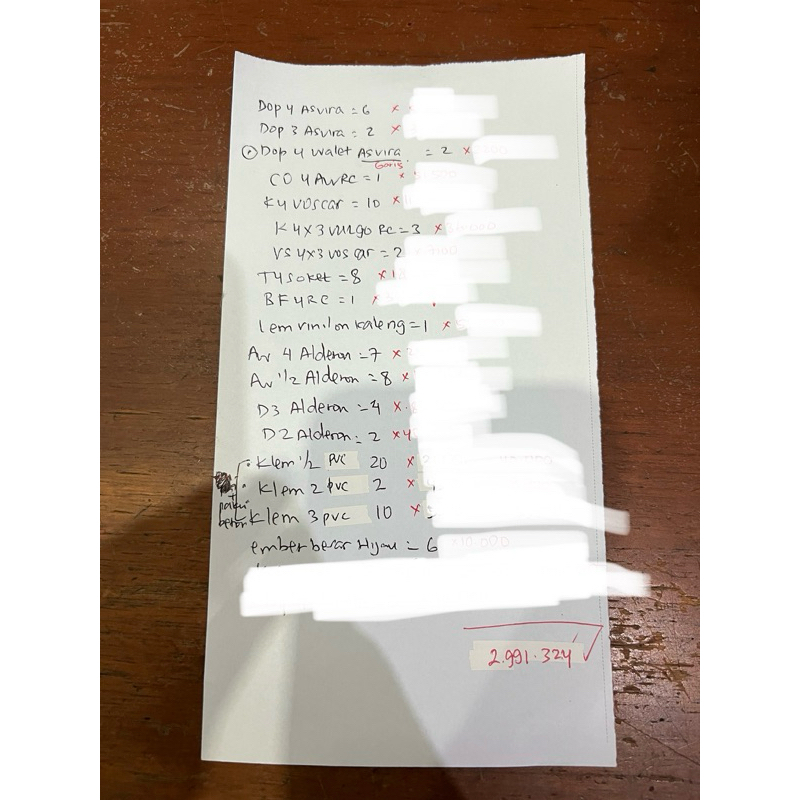 Dop 4 Asvira = 6 ×
Dop 3 Asvira = 2 ×
Dop 4 walet Asvira = 2 ×
CO 4 AW RC = 1 ×
K4 voscar = 10 ×
K 4x3 RC = 3 ×
VS 4x3 voscar = 2
T4 soket = 8 ×
BF 4 RC = 1 ×
lem vinilon kaleng = 1 ×
Av 4 Alderon = 7 ×
Av 1/2 Alderon = 8 ×
D3 Alderon = 4 ×
D2 Alderon = 2 ×4
Klem 1/2 pvc 20 ×
Klem 2 pvc 2 ×
paku
beton Klem 3 pvc 10 ×
ember besar Hijau = 6
2.991.324